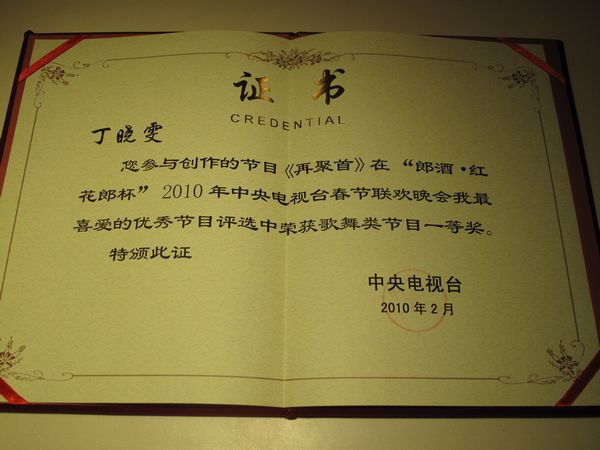 证 书
CREDENTIAL
丁晓雯
您参与创作的节目《再聚首》在“郎酒·红
花郎杯”2010年中央电视台春节联欢晚会我最
喜爱的优秀节目评选中荣获歌舞类节目一等奖。
特颁此证
中央电视台
2010年2月